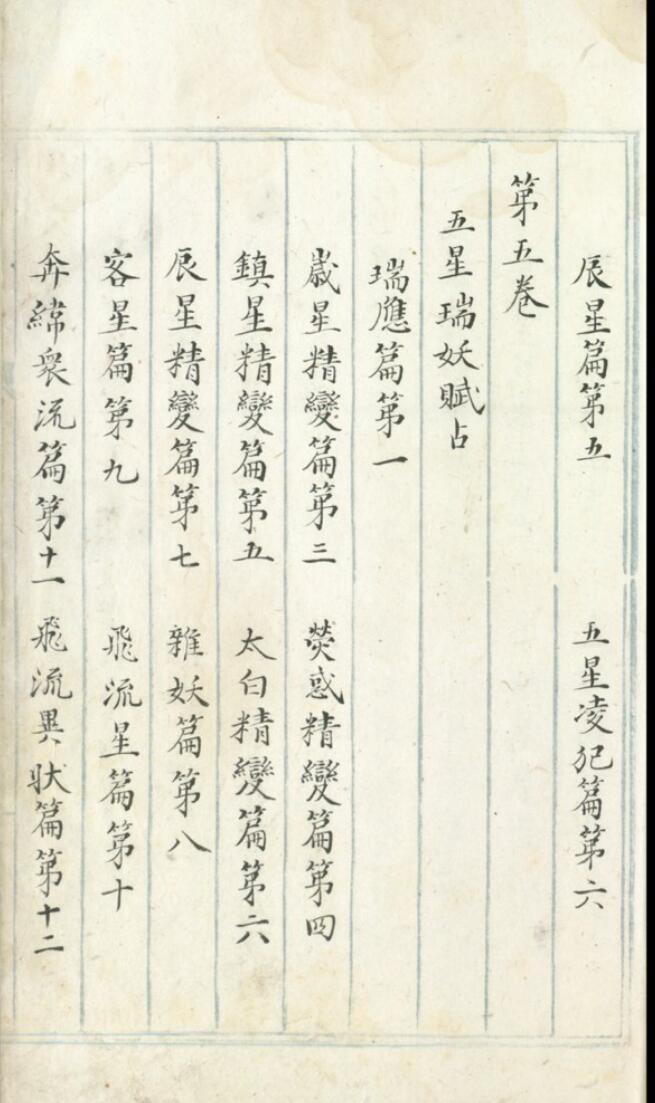 辰星篇第五　五星凌犯篇第六
第五卷
五星瑞妖賦占
瑞應篇第一
歲星精變篇第三　熒惑精變篇第四
鎮星精變篇第五　太白精變篇第六
辰星精變篇第七　雜妖篇第八
客星篇第九　飛流星篇第十
奔緯衆流篇第十一　飛流異狀篇第十二